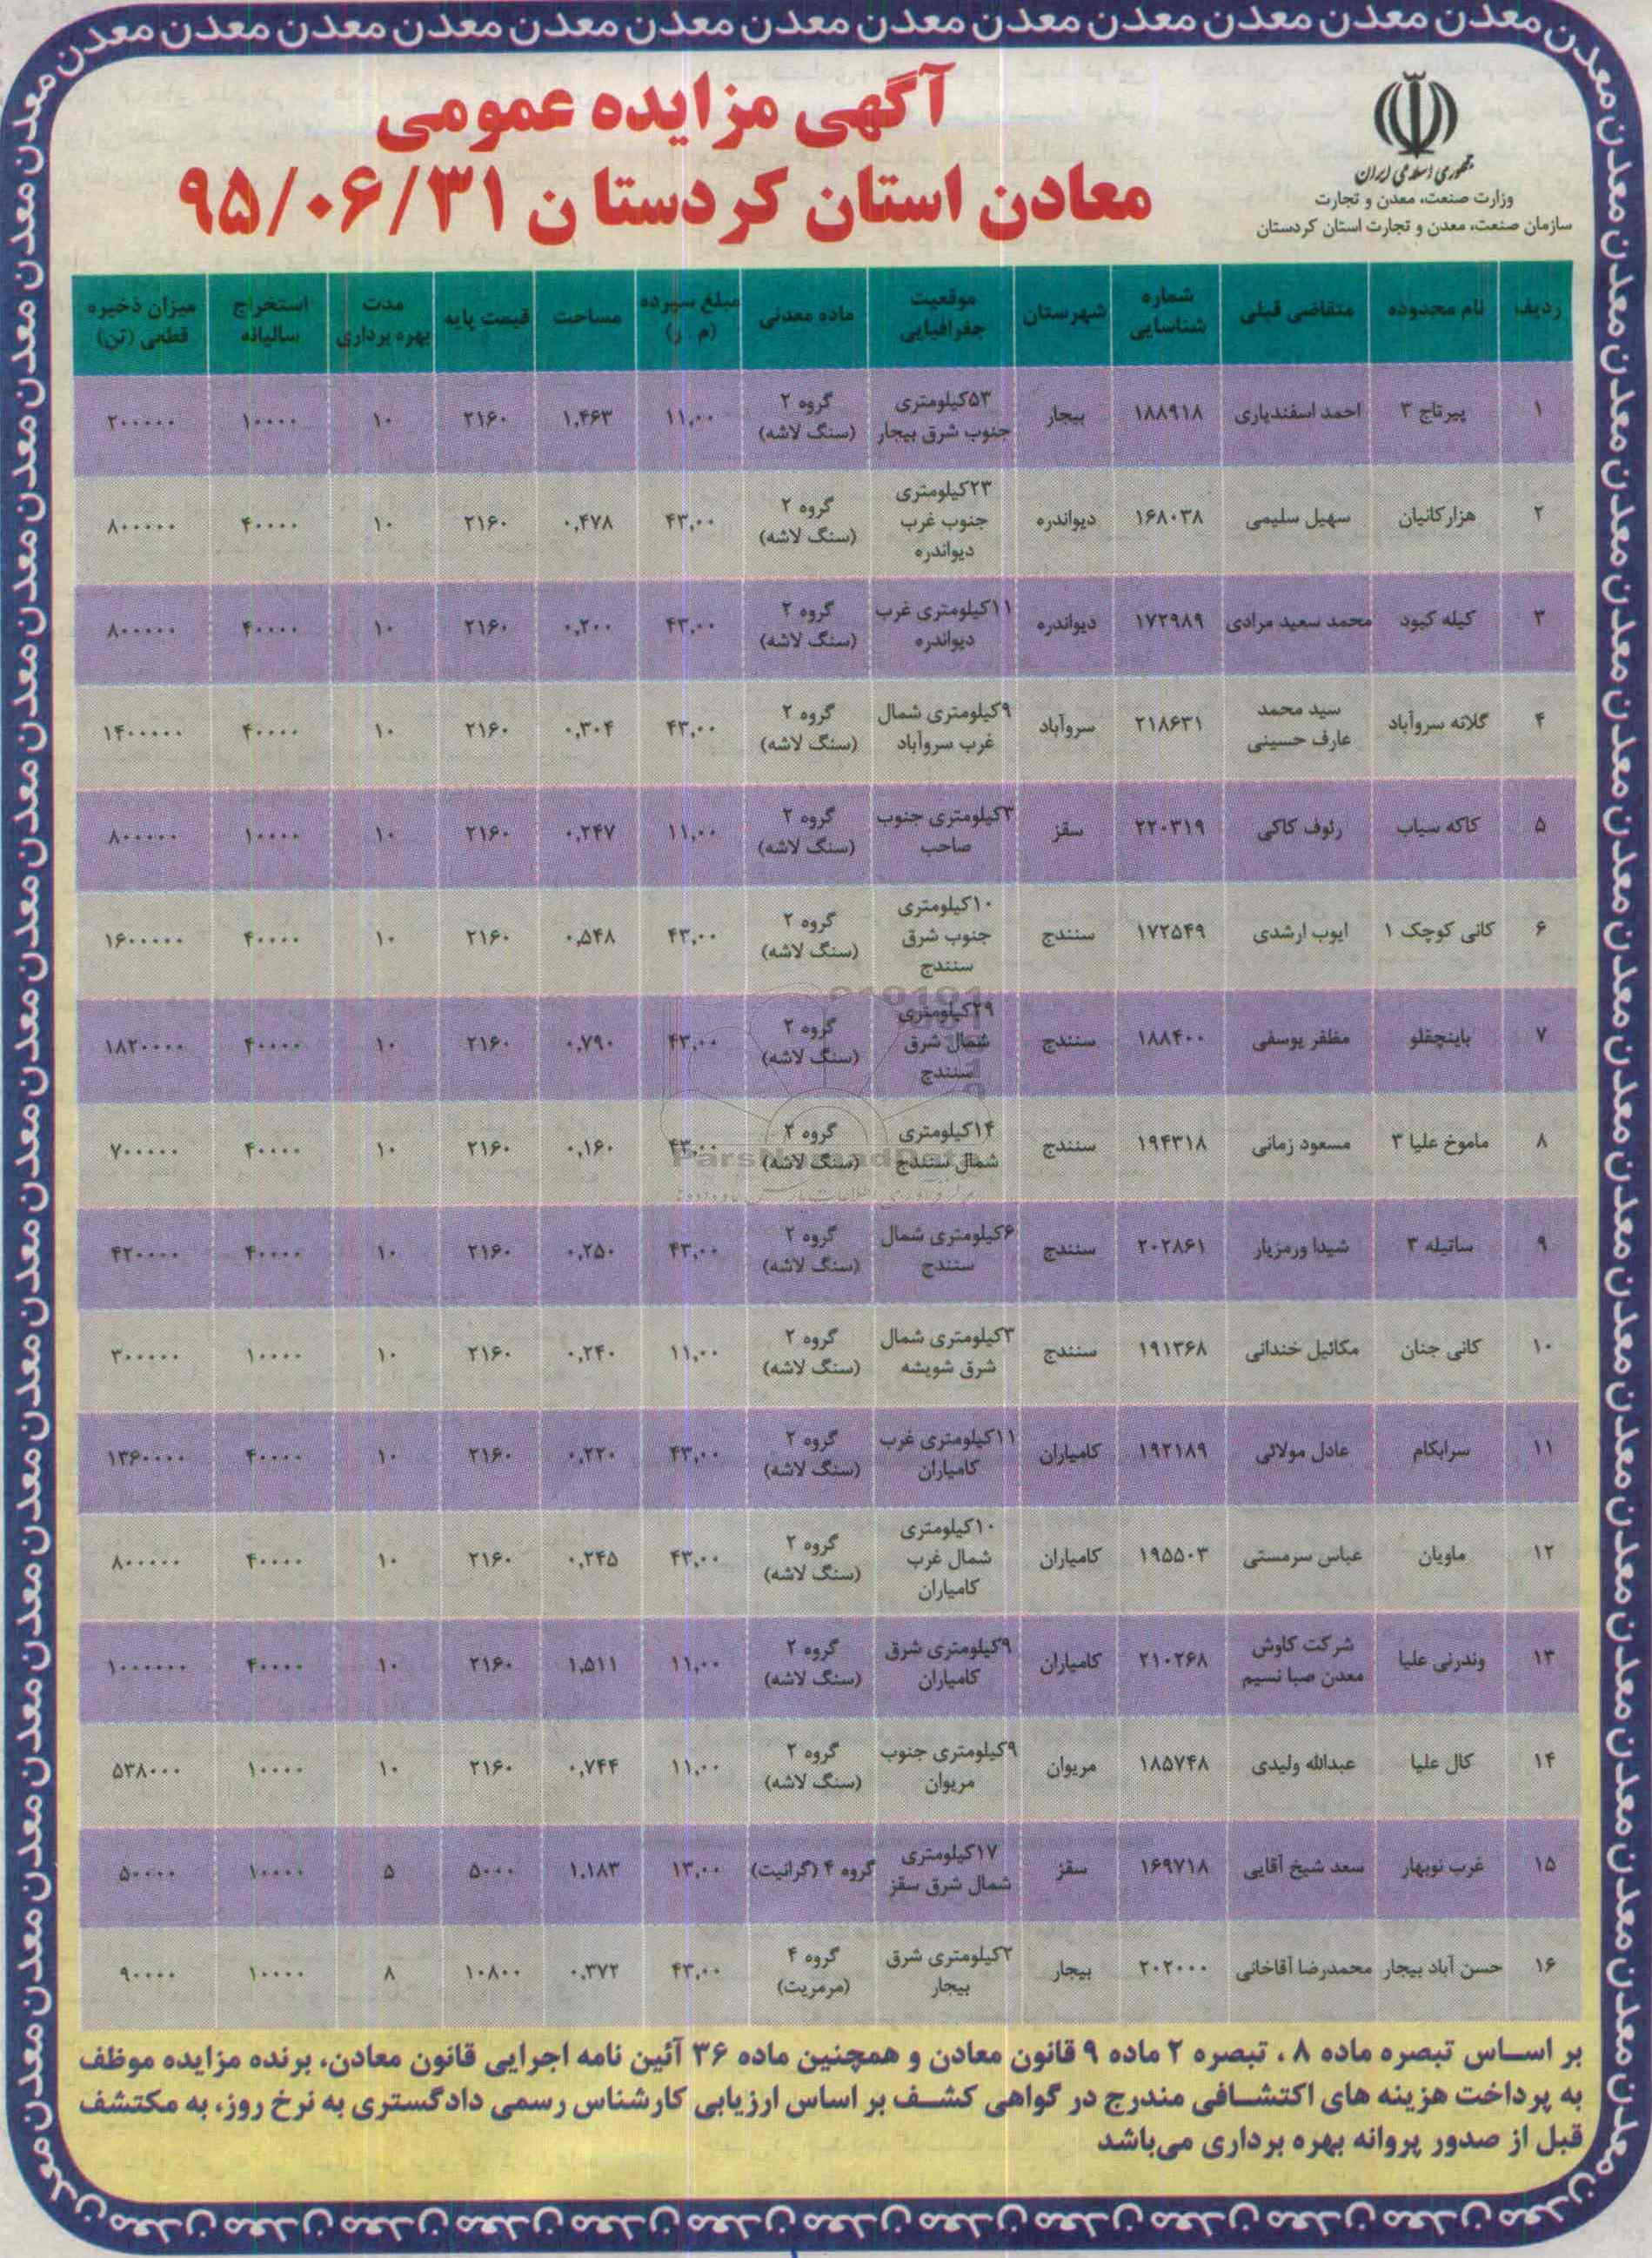 معدن معدن معدن معدن معدن معدن معدن معدن معدن معدن معدن معدن معدن
جمهوری اسلامی ایران
وزارت صنعت، معدن و تجارت
سازمان صنعت، معدن و تجارت استان کردستان
آگهی مزایده عمومی
معادن استان کردستان ۹۵/۰۶/۳۱
ردیف نام محدوده متقاضی قبلی شماره شناسایی شهرستان موقعیت جغرافیایی ماده معدنی مبلغ سپرده (م . ر) مساحت قیمت پایه مدت بهره برداری استخراج سالیانه میزان ذخیره قطعی (تن)
۱ پیرتاج ۳ احمد اسفندیاری ۱۸۸۹۱۸ بیجار ۵۳کیلومتری جنوب شرق بیجار گروه ۲ (سنگ لاشه) ۱۱,۰۰ ۱,۴۶۳ ۲۱۶۰ ۱۰ ۱۰۰۰۰ ۲۰۰۰۰۰
۲ هزارکانیان سهیل سلیمی ۱۶۸۰۳۸ دیواندره ۲۳کیلومتری جنوب غرب دیواندره گروه ۲ (سنگ لاشه) ۴۳,۰۰ ۰,۴۷۸ ۲۱۶۰ ۱۰ ۴۰۰۰۰ ۸۰۰۰۰۰
۳ کیله کبود محمد سعید مرادی ۱۷۲۹۸۹ دیواندره ۱۱کیلومتری غرب دیواندره گروه ۲ (سنگ لاشه) ۴۳,۰۰ ۰,۲۰۰ ۲۱۶۰ ۱۰ ۴۰۰۰۰ ۸۰۰۰۰۰
۴ گلانه سروآباد سید محمد عارف حسینی ۲۱۸۶۳۱ سروآباد ۹کیلومتری شمال غرب سروآباد گروه ۲ (سنگ لاشه) ۴۳,۰۰ ۰,۳۰۴ ۲۱۶۰ ۱۰ ۴۰۰۰۰ ۱۴۰۰۰۰۰
۵ کاکه سیاب رئوف کاکی ۲۲۰۳۱۹ سقز ۳کیلومتری جنوب صاحب گروه ۲ (سنگ لاشه) ۱۱,۰۰ ۰,۲۴۷ ۲۱۶۰ ۱۰ ۱۰۰۰۰ ۸۰۰۰۰۰
۶ کانی کوچک ۱ ایوب ارشدی ۱۷۲۵۴۹ سنندج ۱۰کیلومتری جنوب شرق سنندج گروه ۲ (سنگ لاشه) ۴۳,۰۰ ۰,۵۴۸ ۲۱۶۰ ۱۰ ۴۰۰۰۰ ۱۶۰۰۰۰۰
۷ باینچقلو مظفر یوسفی ۱۸۸۴۰۰ سنندج ۲۹کیلومتری شمال شرق سنندج گروه ۲ (سنگ لاشه) ۴۳,۰۰ ۰,۷۹۰ ۲۱۶۰ ۱۰ ۴۰۰۰۰ ۱۸۲۰۰۰۰
۸ ماموخ علیا ۳ مسعود زمانی ۱۹۴۳۱۸ سنندج ۱۴کیلومتری شمال سنندج گروه ۲ (سنگ لاشه) ۴۳,۰۰ ۰,۱۶۰ ۲۱۶۰ ۱۰ ۴۰۰۰۰ ۷۰۰۰۰۰
۹ ساتیله ۳ شیدا ورمزیار ۲۰۲۸۶۱ سنندج ۶کیلومتری شمال سنندج گروه ۲ (سنگ لاشه) ۴۳,۰۰ ۰,۲۵۰ ۲۱۶۰ ۱۰ ۴۰۰۰۰ ۴۲۰۰۰۰
۱۰ کانی جنان مکائیل خندانی ۱۹۱۳۶۸ سنندج ۳کیلومتری شمال شرق شویشه گروه ۲ (سنگ لاشه) ۱۱,۰۰ ۰,۲۴۰ ۲۱۶۰ ۱۰ ۱۰۰۰۰ ۳۰۰۰۰۰
۱۱ سرابکام عادل مولائی ۱۹۲۱۸۹ کامیاران ۱۱کیلومتری غرب کامیاران گروه ۲ (سنگ لاشه) ۴۳,۰۰ ۰,۲۲۰ ۲۱۶۰ ۱۰ ۴۰۰۰۰ ۱۳۶۰۰۰۰
۱۲ ماویان عباس سرمستی ۱۹۵۵۰۳ کامیاران ۱۰کیلومتری شمال غرب کامیاران گروه ۲ (سنگ لاشه) ۴۳,۰۰ ۰,۲۴۵ ۲۱۶۰ ۱۰ ۴۰۰۰۰ ۸۰۰۰۰۰
۱۳ وندرنی علیا شرکت کاوش معدن صبا نسیم ۲۱۰۲۶۸ کامیاران ۹کیلومتری شرق کامیاران گروه ۲ (سنگ لاشه) ۱۱,۰۰ ۱,۵۱۱ ۲۱۶۰ ۱۰ ۴۰۰۰۰ ۱۰۰۰۰۰۰
۱۴ کال علیا عبدالله ولیدی ۱۸۵۷۴۸ مریوان ۹کیلومتری جنوب مریوان گروه ۲ (سنگ لاشه) ۱۱,۰۰ ۰,۷۴۴ ۲۱۶۰ ۱۰ ۱۰۰۰۰ ۵۳۸۰۰۰
۱۵ غرب نوبهار سعد شیخ آقایی ۱۶۹۷۱۸ سقز ۱۷کیلومتری شمال شرق سقز گروه ۴ (گرانیت) ۱۳,۰۰ ۱,۱۸۳ ۵۰۰۰ ۵ ۱۰۰۰۰ ۵۰۰۰۰
۱۶ حسن آباد بیجار محمدرضا آقاخانی ۲۰۲۰۰۰ بیجار ۲کیلومتری شرق بیجار گروه ۴ (مرمریت) ۴۳,۰۰ ۰,۳۷۲ ۱۰۸۰۰ ۸ ۱۰۰۰۰ ۹۰۰۰۰
بر اساس تبصره ماده ۸ ، تبصره ۲ ماده ۹ قانون معادن و همچنین ماده ۳۶ آئین نامه اجرایی قانون معادن، برنده مزایده موظف
به پرداخت هزینه های اکتشافی مندرج در گواهی کشف بر اساس ارزیابی کارشناس رسمی دادگستری به نرخ روز، به مکتشف
قبل از صدور پروانه بهره برداری می‌باشد
معدن معدن معدن معدن معدن معدن معدن معدن معدن معدن معدن معدن معدن